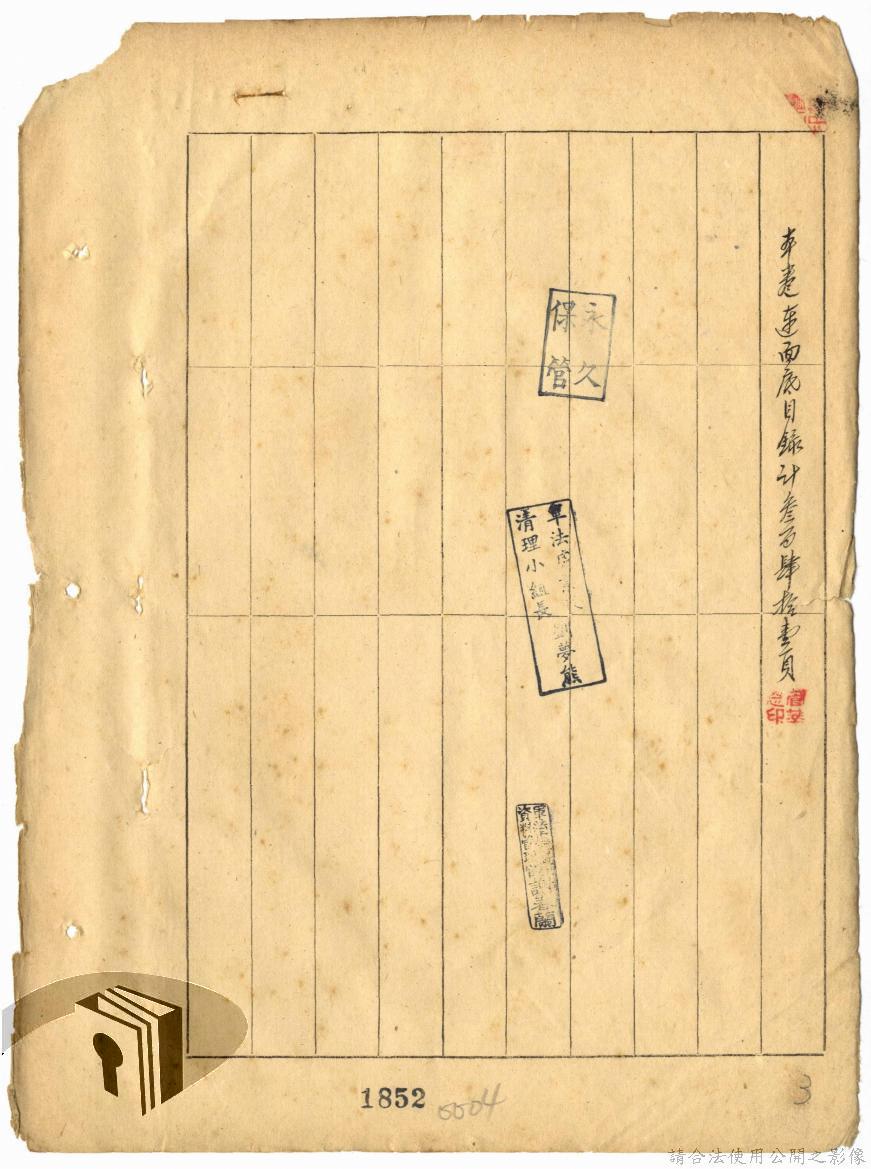 本卷連面底目錄計叁百肆拾壹頁
永久
保管
軍法
劉夢熊
清理小組長
資料管理
1852
0004
3
請合法使用公開之影像